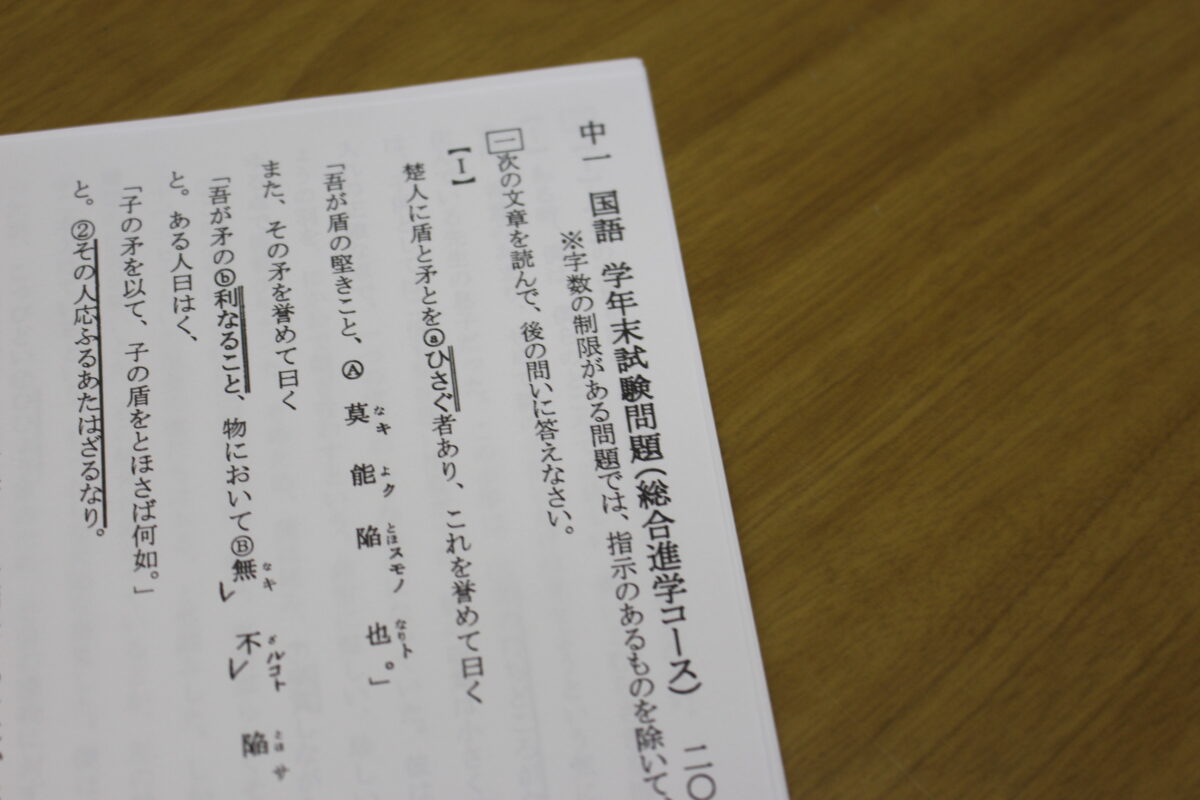 中一 国語 学年末試験問題(総合進学コース) 二〇
※字数の制限がある問題では、指示のあるものを除いて、
一 次の文章を読んで、後の問いに答えなさい。
【Ⅰ】
楚人に盾と矛とをⓐひさぐ者あり、これを誉めて曰く
「吾が盾の堅きこと、Ⓐ 莫なキ 能よク 陥とほスモノ 也なりト。」
また、その矛を誉めて曰く
「吾が矛のⓑ利なること、物においてⒷ無なキレ 不ざルコトレ 陥とほサ
と。ある人曰はく、
「子の矛を以て、子の盾をとほさば何如。」
と。②その人応ふるあたはざるなり。